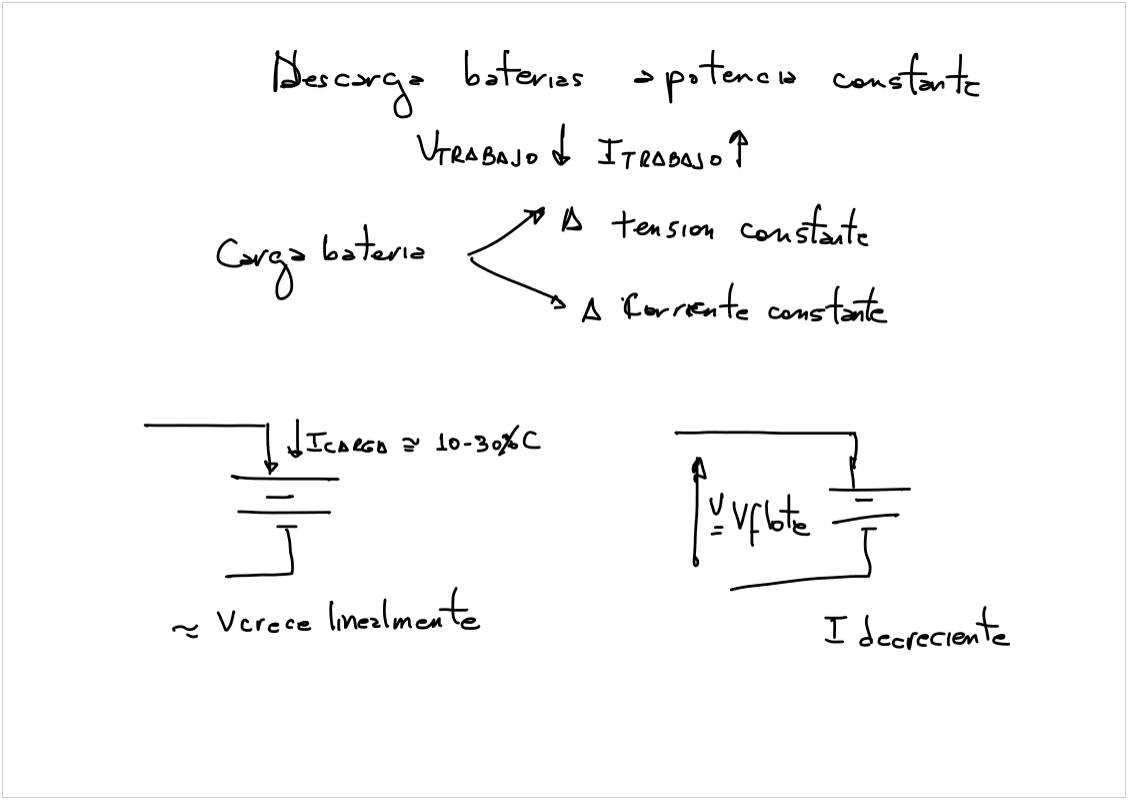 Descarga baterias a potencia constante
VTRABAJO ↓ ITRABAJO ↑
Carga bateria
A tension constante
A Corriente constante
↓ICARGA ≅ 10-30% C
V = Vflote
≈ V crece linealmente
I decreciente